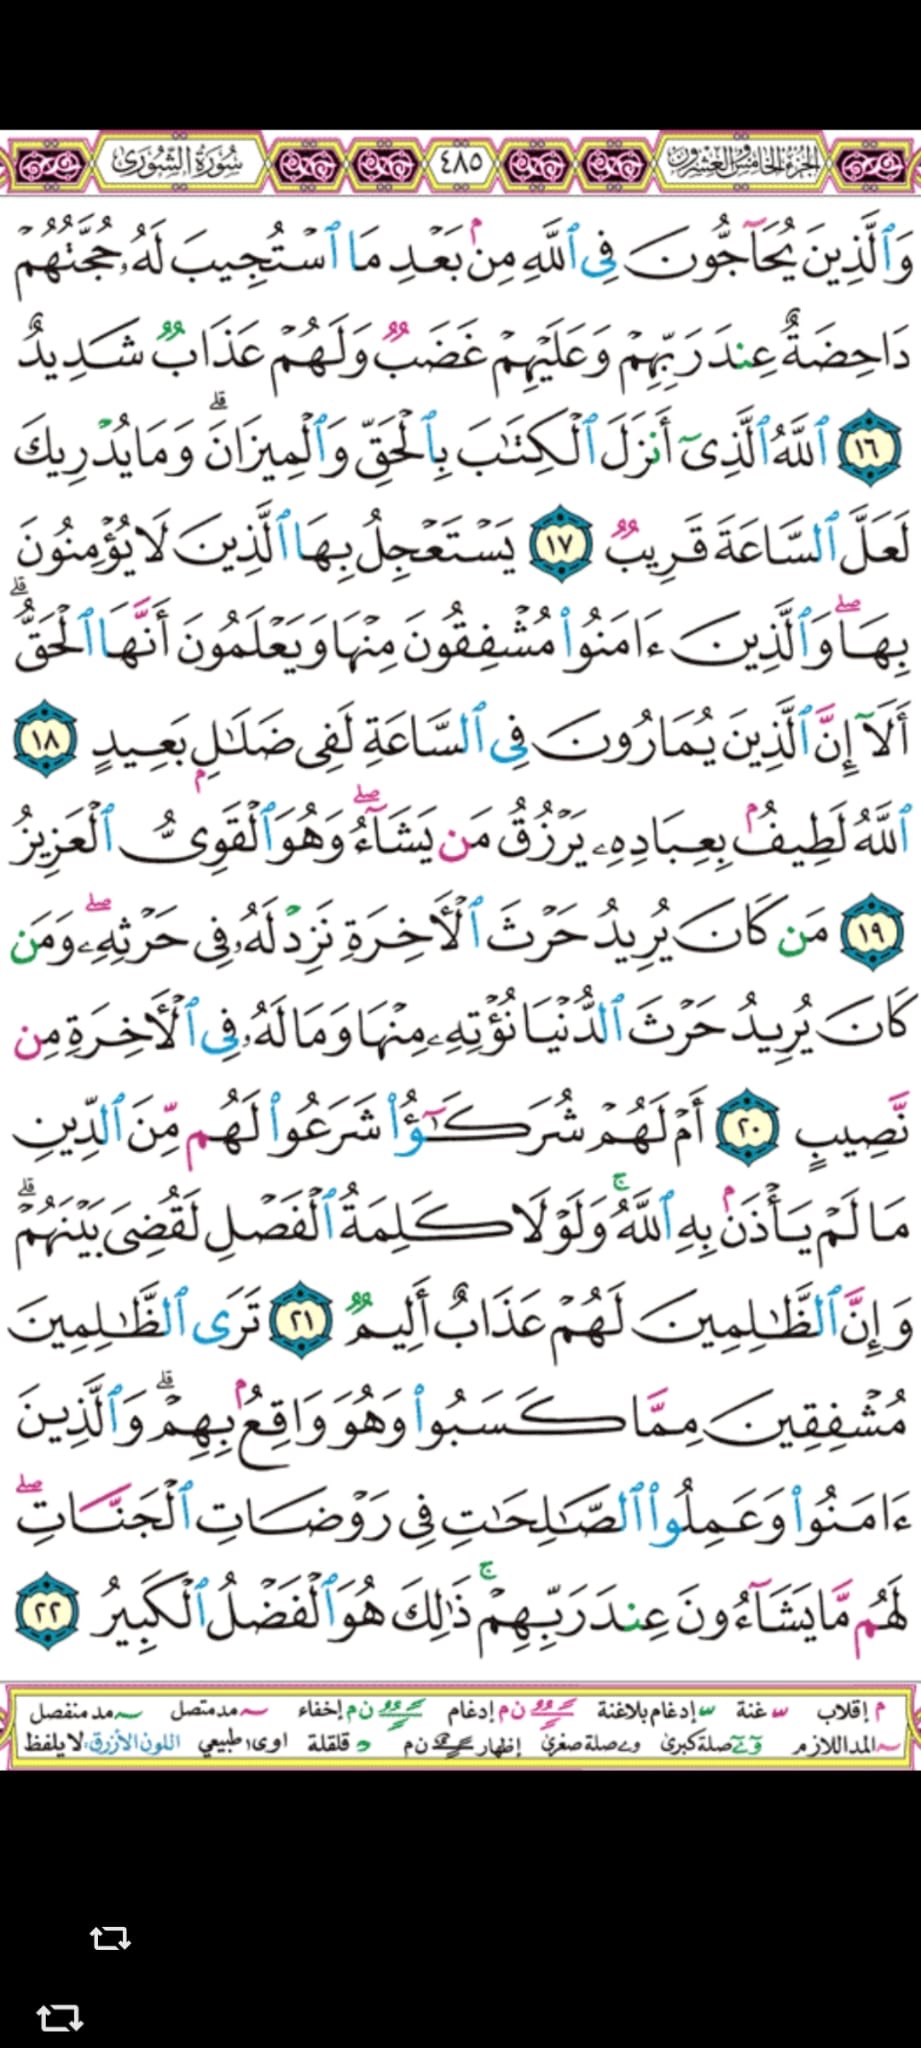 الجزء الخامس والعشرون ٤٨٥ سورة الشورى
وَٱلَّذِينَ يُحَآجُّونَ فِى ٱللَّهِ مِنۢ بَعْدِ مَا ٱسْتُجِيبَ لَهُۥ حُجَّتُهُمْ
دَاحِضَةٌ عِندَ رَبِّهِمْ وَعَلَيْهِمْ غَضَبٌ وَلَهُمْ عَذَابٌ شَدِيدٌ
١٦ ٱللَّهُ ٱلَّذِىٓ أَنزَلَ ٱلْكِتَٰبَ بِٱلْحَقِّ وَٱلْمِيزَانَ ۗ وَمَا يُدْرِيكَ
لَعَلَّ ٱلسَّاعَةَ قَرِيبٌ ١٧ يَسْتَعْجِلُ بِهَا ٱلَّذِينَ لَا يُؤْمِنُونَ
بِهَا ۖ وَٱلَّذِينَ ءَامَنُوا۟ مُشْفِقُونَ مِنْهَا وَيَعْلَمُونَ أَنَّهَا ٱلْحَقُّ ۗ
أَلَآ إِنَّ ٱلَّذِينَ يُمَارُونَ فِى ٱلسَّاعَةِ لَفِى ضَلَٰلٍۭ بَعِيدٍ ١٨
ٱللَّهُ لَطِيفٌۢ بِعِبَادِهِۦ يَرْزُقُ مَن يَشَآءُ ۖ وَهُوَ ٱلْقَوِىُّ ٱلْعَزِيزُ
١٩ مَن كَانَ يُرِيدُ حَرْثَ ٱلْأَخِرَةِ نَزِدْ لَهُۥ فِى حَرْثِهِۦ ۖ وَمَن
كَانَ يُرِيدُ حَرْثَ ٱلدُّنْيَا نُؤْتِهِۦ مِنْهَا وَمَا لَهُۥ فِى ٱلْأَخِرَةِ مِن
نَّصِيبٍ ٢٠ أَمْ لَهُمْ شُرَكَٰٓؤُا۟ شَرَعُوا۟ لَهُم مِّنَ ٱلدِّينِ
مَا لَمْ يَأْذَنۢ بِهِ ٱللَّهُ ۚ وَلَوْلَا كَلِمَةُ ٱلْفَصْلِ لَقُضِىَ بَيْنَهُمْ ۗ
وَإِنَّ ٱلظَّٰلِمِينَ لَهُمْ عَذَابٌ أَلِيمٌ ٢١ تَرَى ٱلظَّٰلِمِينَ
مُشْفِقِينَ مِمَّا كَسَبُوا۟ وَهُوَ وَاقِعٌۢ بِهِمْ ۗ وَٱلَّذِينَ
ءَامَنُوا۟ وَعَمِلُوا۟ ٱلصَّٰلِحَٰتِ فِى رَوْضَاتِ ٱلْجَنَّاتِ ۖ
لَهُم مَّا يَشَآءُونَ عِندَ رَبِّهِمْ ۚ ذَٰلِكَ هُوَ ٱلْفَضْلُ ٱلْكَبِيرُ ٢٢
م إقلاب غنة إدغام بلاغنة ن م إدغام ن م إخفاء مد متصل مد منفصل
المد اللازم صلة كبرى و ے صلة صغرى إظهار ن م د قلقلة اوى طبيعي اللون الأزرق لا يلفظ